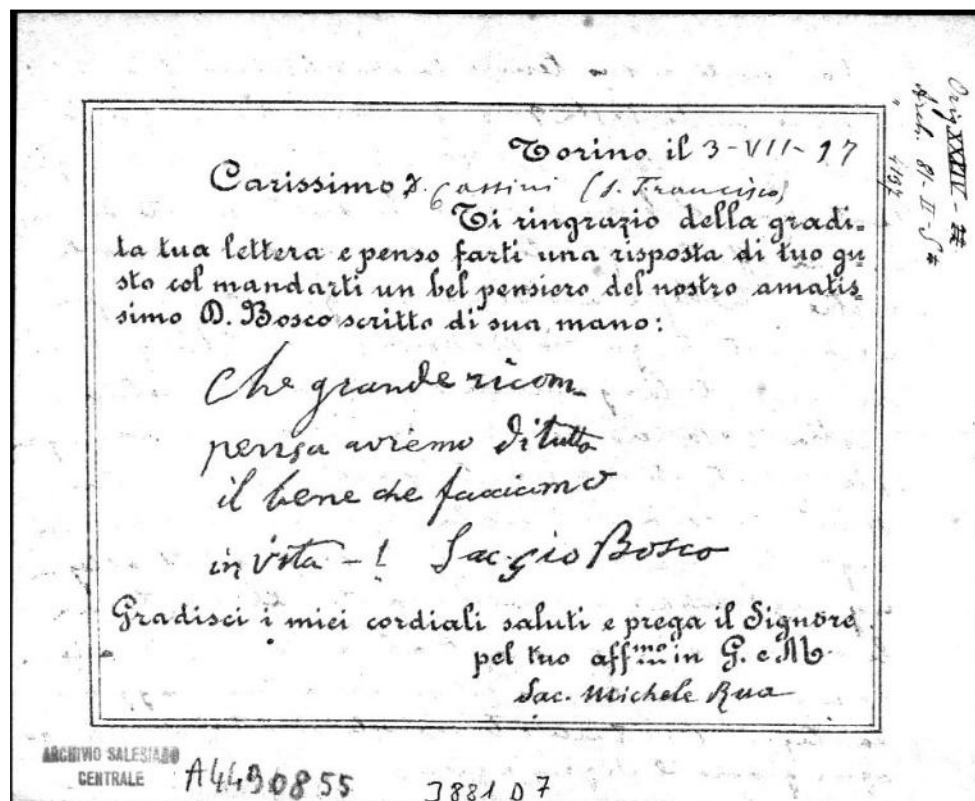 Torino il 3-VII-97
Carissimo D. Cassini (S. Francisco)
Ti ringrazio della gradi-
ta tua lettera e penso farti una risposta di tuo gu
sto col mandarti un bel pensiero del nostro amatis-
simo D. Bosco scritto di sua mano:
Che grande ricom-
pensa avremo di tutto
il bene che facciamo
in vita - ! Sac. Gio Bosco
Gradisci i miei cordiali saluti e prega il Signore
pel tuo aff.mo in G. e M.
Sac. Michele Rua
Orig XXXIV -
Arch. 81-II-5
ARCHIVIO SALESIANO
CENTRALE
A4490855
3881 D 7